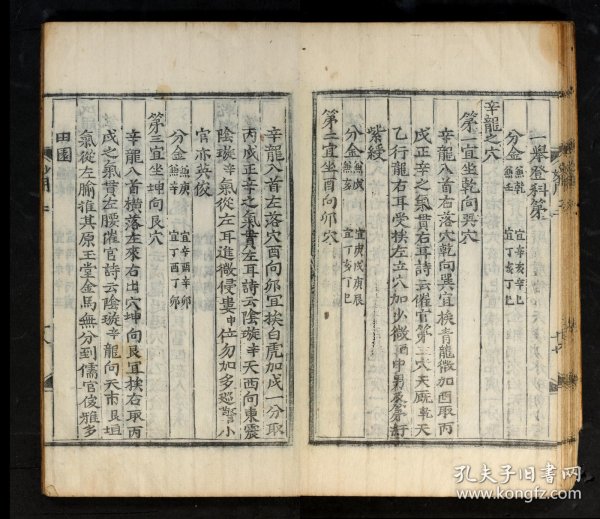 一舉登科第
分金 無亥 宜辛亥辛巳
無壬 宜丁亥丁巳
辛龍之穴
第一宜坐乾向巽穴
辛龍入首右落穴乾向巽宜挨青龍微加酉取丙
戌正辛之氣貫右耳詩云催官第三穴天厩乾天
乙行龍右耳受挨左立穴加少微酒中男
紫綬
分金 無戌 宜庚戌庚辰
無亥 宜丁亥丁巳
第二宜坐酉向卯穴
辛龍入首左落穴酉向卯宜挨白虎加戌一分取
丙戌正辛之氣貫左耳詩云陰璇辛天酉向東震
陰璇辛氣從左耳進微侵婁位勿加多巡警小
官亦英俊
分金 無庚 宜辛酉辛卯
無辛 宜丁酉丁卯
第三宜坐坤向艮穴
辛龍入首橫落左來右出穴坤向艮宜挨右取丙
戌之氣貫左腰催官詩云陰璇辛龍向天市艮垣
氣從左腧推其原玉堂金馬無分到儒官俊雅多
田園
孔夫子旧书网
www.kongfz.com